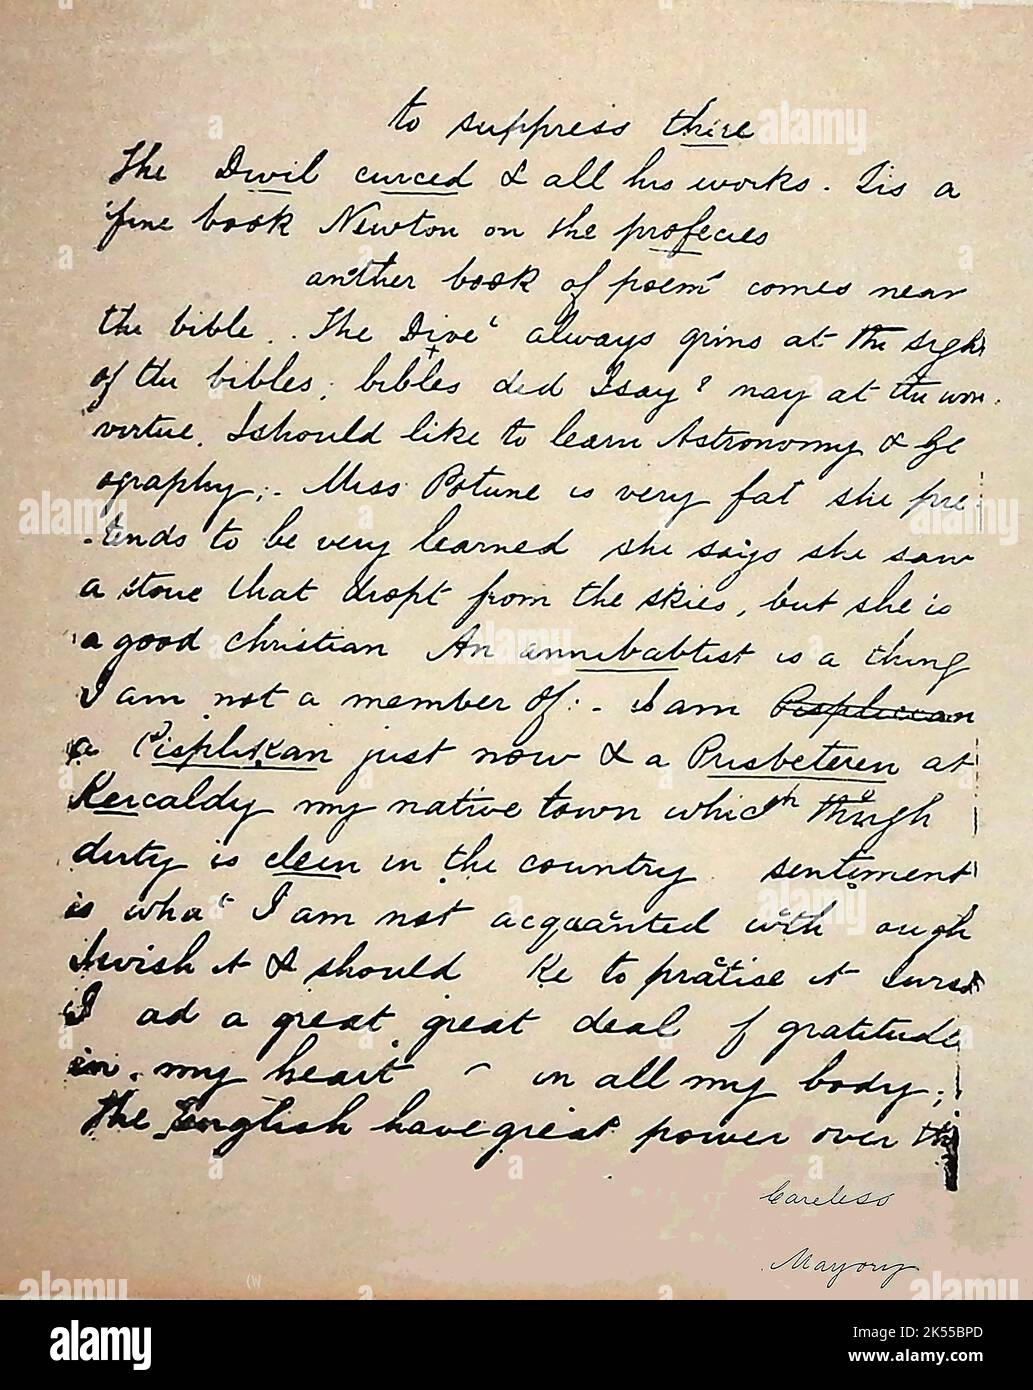 to suppress there
The Divil curced & all his works. Tis a
fine book Newton on the profecies
another book of poems comes near
the bible.. The Divel always grins at the sight
of the bibles; bibles did I say? nay at the word
virtue. I should like to learn Astronomy & Ge
ography;- Miss Potune is very fat she pre-
-tends to be very learned she says she saw
a stone that dropt from the skies, but she is
a good christian An annibabtist is a thing
I am not a member of:- I am Pisplikan
a Pisplikan just now & a Prisbeteren at
Kercaldy my native town which though
dirty is clein in the country sentiment
is what I am not acquanted with ough
I wish it & should like to pratise it
I ad a great great deal of gratitude
in my heart in all my body;
the English have great power over the
Careless
Mayory
alamy
Image ID: 2K55BPD
www.alamy.com